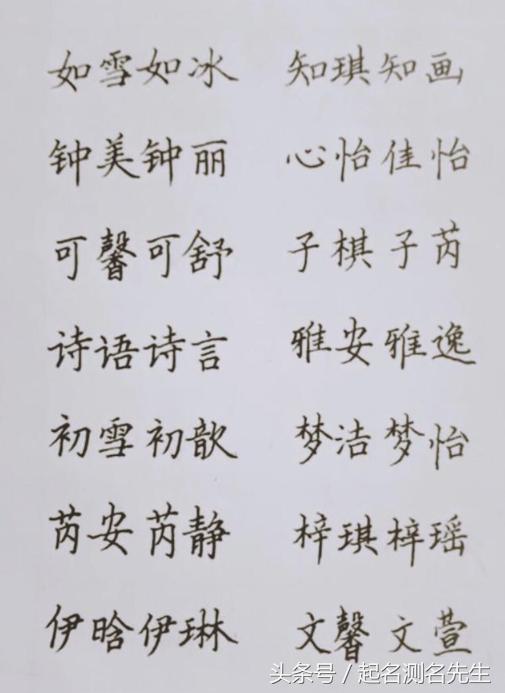 如雪如冰 知琪知画
钟美钟丽 心怡佳怡
可馨可舒 子棋子芮
诗语诗言 雅安雅逸
初雪初歆 梦洁梦怡
芮安芮静 梓琪梓瑶
伊晗伊琳 文馨文萱
头条号/起名测名先生